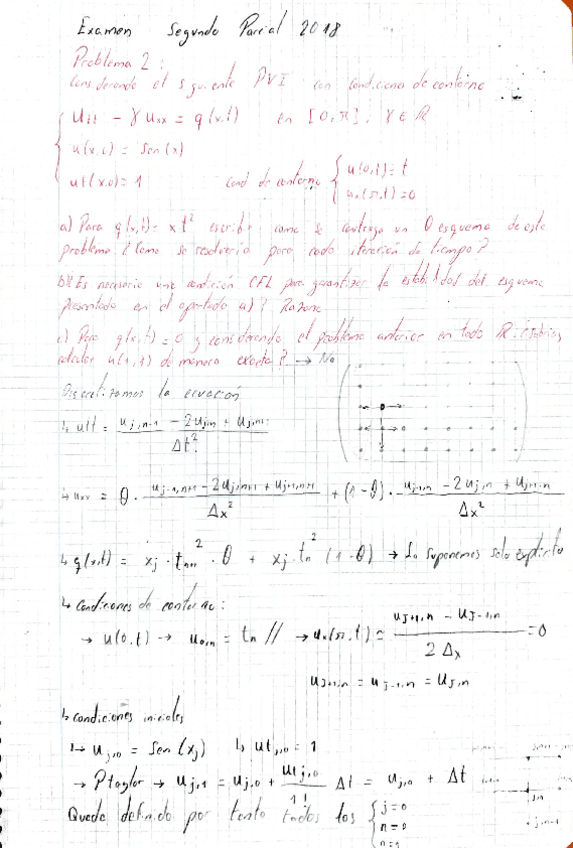 Examen Segundo Parcial 2018
Problema 2:
Considerando el siguiente PVI con condiciones de contorno
utt - γ uxx = q(x,t) en [0,π], γ ∈ ℝ
u(x,0) = Sen(x)
ut(x,0) = 1 Cond de contorno { u(0,t) = t
ux(π,t) = 0
a) Para q(x,t) = x t² escribir como se construye un θ esquema de este
problema ¿Como se resolvería para cada iteración de tiempo?
b) ¿Es necesario una condición CFL para garantizar la estabilidad del esquema
presentado en el apartado a)? Razone
c) Para q(x,t) = 0 y considerando el problema anterior en todo ℝ ¿Sabrías
calcular u(1,1) de manera exacta? → No
Discretizamos la ecuación
↳ utt = (uj,n-1 - 2uj,n + uj,n+1) / Δt²
↳ uxx = θ · (uj-1,n+1 - 2uj,n+1 + uj+1,n+1) / Δx² + (1-θ) · (uj-1,n - 2uj,n + uj+1,n) / Δx²
↳ q(x,t) = xj · tn+1² · θ + xj · tn² (1-θ) → Lo suponemos solo explícito
↳ Condiciones de contorno:
→ u(0,t) → u0,n = tn // → ux(π,t) = (uJ+1,n - uJ-1,n) / 2Δx = 0
uJ+1,n = uJ-1,n = uJ,n
↳ condiciones iniciales
↳→ uj,0 = Sen(xj) ↳ utj,0 = 1
→ Ptaylor → uj,1 = uj,0 + utj,0 / 1! Δt = uj,0 + Δt
Queda definido por tanto todos los { j=0
n=0
n=1